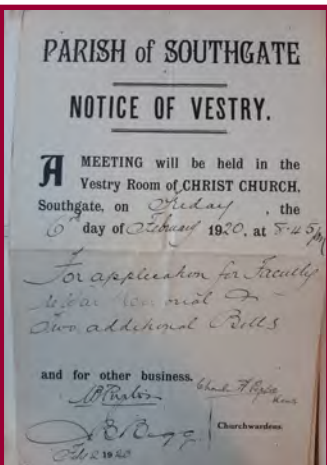 PARISH of SOUTHGATE
NOTICE OF VESTRY.
A MEETING will be held in the
Vestry Room of CHRIST CHURCH,
Southgate, on Friday, the
6th day of February 1920, at 8.45 pm
For application for Faculty
re War Memorial &
Two additional Bells
and for other business.
Churchwardens
Feb 2 1920